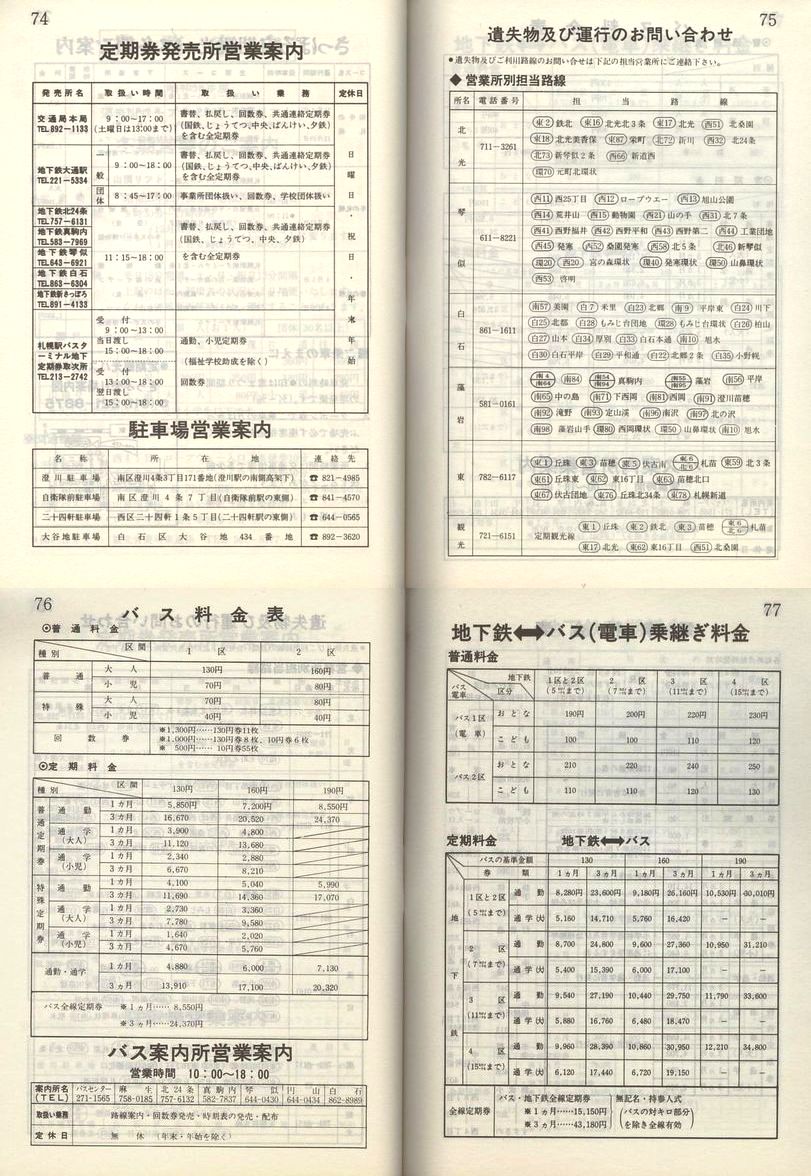 74
定期券発売所営業案内
発売所名 取扱い時間 取扱い業務 定休日
交通局本局 TEL892-1133 9:00~17:00 (土曜日は13:00まで) 書替、払戻し、回数券、共通連絡定期券
(国鉄、じょうてつ、中央、ばんけい、夕鉄)
を含む全定期券
地下鉄大通駅 TEL221-5334 一般 9:00~18:00 書替、払戻し、回数券、共通連絡定期券
(国鉄、じょうてつ、中央、ばんけい、夕鉄)
を含む全定期券
団体 8:45~17:00 事業所団体扱い、回数券、学校団体扱い
地下鉄北24条 TEL757-6131
地下鉄真駒内 TEL583-7969
地下鉄琴似 TEL643-6921
地下鉄白石 TEL863-6304
地下鉄新さっぽろ TEL891-4133
11:15~18:00
書替、払戻し、回数券、共通連絡定期券
(国鉄、じょうてつ、中央、夕鉄)
を含む全定期券
札幌駅バスターミナル地下定期券取次所 TEL213-2742
受付
9:00~13:00
当日渡し
15:00~18:00
受付
13:00~18:00
翌日渡し
15:00~18:00
通勤、小児定期券
(福祉学校助成を除く)
回数券
日曜日・祝日・年末年始
駐車場営業案内
名称 所在地 連絡先
澄川駐車場 南区澄川4条3丁目171番地(澄川駅の南側高架下) ☎821-4985
自衛隊前駐車場 南区澄川4条7丁目(自衛隊前駅の東側) ☎841-4570
二十四軒駐車場 西区二十四軒1条5丁目(二十四軒駅の東側) ☎644-0565
大谷地駐車場 白石区大谷地434番地 ☎892-3620
75
遺失物及び運行のお問い合わせ
●遺失物及びご利用路線のお問い合せは下記の担当営業所にご連絡下さい。
◆営業所別担当路線
所名 電話番号 担当路線
北光 711-3261
東2 鉄北 東16 北光北3条 東17 北光 西51 北桑園
東18 北光美香保 東87 栄町 北72 新川 西32 北24条
北73 新琴似2条 西66 新道西
環70 元町北環状
琴似 611-8221
西11 西25丁目 西12 ロープウエー 西13 旭山公園
西14 荒井山 西15 動物園 西21 山の手 西31 北7条
西41 西野福井 西42 西野平和 西43 西野第二 西44 工業団地
西45 発寒 西52 桑園発寒 西58 北5条 北46 新琴似
環20 西20 宮の森環状 環40 発寒環状 環50 山鼻環状
西53 啓明
白石 861-1611
南57 美園 白7 米里 白23 北郷 南9 平岸東 白24 川下
白25 北都 白28 もみじ台団地 環28 もみじ台環状 白26 柏山
白27 山本 白34 厚別 白33 白石本通 南10 旭水
白30 白石平岸 白29 平和通 白22 北郷2条 白35 小野幌
藻岩 581-0161
南4 南64 南84 南54 南94 真駒内 南55 南95 藻岩 南56 平岸
南65 中の島 南71 下西岡 南81 西岡 南91 澄川苗穂
南92 滝野 南93 定山渓 南96 南沢 南97 北の沢
南98 藻岩山手 環80 西岡環状 環50 山鼻環状 南10 旭水
東 782-6117
東1 丘珠 東3 苗穂 東5 伏古南 東6 北6 札苗 東59 北3条
東61 丘珠東 東62 東16丁目 東63 苗穂北口
東67 伏古団地 東76 丘珠北34条 東78 札幌新道
観光 721-6151
定期観光線 東1 丘珠 東2 鉄北 東3 苗穂 東6 北6 札苗
東17 北光 東62 東16丁目 西51 北桑園
76
バス料金表
⊙普通料金
種別 区間 1区 2区
普通 大人 130円 160円
小児 70円 80円
特殊 大人 70円 80円
小児 40円 40円
回数券 ※1,300円……130円券11枚
※1,000円……130円券8枚、10円券6枚
※500円……10円券55枚
⊙定期料金
種別 区間 130円 160円 190円
普通定期券 通勤 1カ月 5,850円 7,200円 8,550円
3カ月 16,670 20,520 24,370
通学(大人) 1カ月 3,900 4,800
3カ月 11,120 13,680
通学(小児) 1カ月 2,340 2,880
3カ月 6,670 8,210
特殊定期券 通勤 1カ月 4,100 5,040 5,990
3カ月 11,690 14,360 17,070
通学(大人) 1カ月 2,730 3,360
3カ月 7,780 9,580
通学(小児) 1カ月 1,640 2,020
3カ月 4,670 5,760
通勤・通学 1カ月 4,880 6,000 7,130
3カ月 13,910 17,100 20,320
バス全線定期券 ※1カ月……8,550円
※3カ月……24,370円
バス案内所営業案内
営業時間 10:00~18:00
案内所名 (TEL) バスセンター 271-1565 麻生 758-0185 北24条 757-6132 真駒内 582-7837 琴似 644-0430 円山 644-0434 白石 862-8989
取扱い業務 路線案内・回数券発売・時刻表の発売・配布
定休日 無休(年末・年始を除く)
77
地下鉄⟷バス(電車)乗継ぎ料金
普通料金
バス電車 地下鉄 区分 1区と2区(5㎞まで) 2区(7㎞まで) 3区(11㎞まで) 4区(15㎞まで)
バス1区(電車) おとな 190円 200円 220円 230円
こども 100 100 110 120
バス2区 おとな 210 220 240 250
こども 110 110 120 130
定期料金 地下鉄⟷バス
バスの基準金額 130 160 190
券類 1カ月 3カ月 1カ月 3カ月 1カ月 3カ月
地下鉄
1区と2区(5㎞まで) 通勤 8,280円 23,600円 9,180円 26,160円 10,530円 30,010円
通学(大) 5,160 14,710 5,760 16,420 — —
2区(7㎞まで) 通勤 8,700 24,800 9,600 27,360 10,950 31,210
通学(大) 5,400 15,390 6,000 17,100 — —
3区(11㎞まで) 通勤 9,540 27,190 10,440 29,750 11,790 33,600
通学(大) 5,880 16,760 6,480 18,470 — —
4区(15㎞まで) 通勤 9,960 28,390 10,860 30,950 12,210 34,800
通学(大) 6,120 17,440 6,720 19,150 — —
全線定期券 バス・地下鉄全線定期券
※1カ月……15,150円
※3カ月……43,180円
無記名・持参人式
(バスの対キロ部分を除き全線有効)